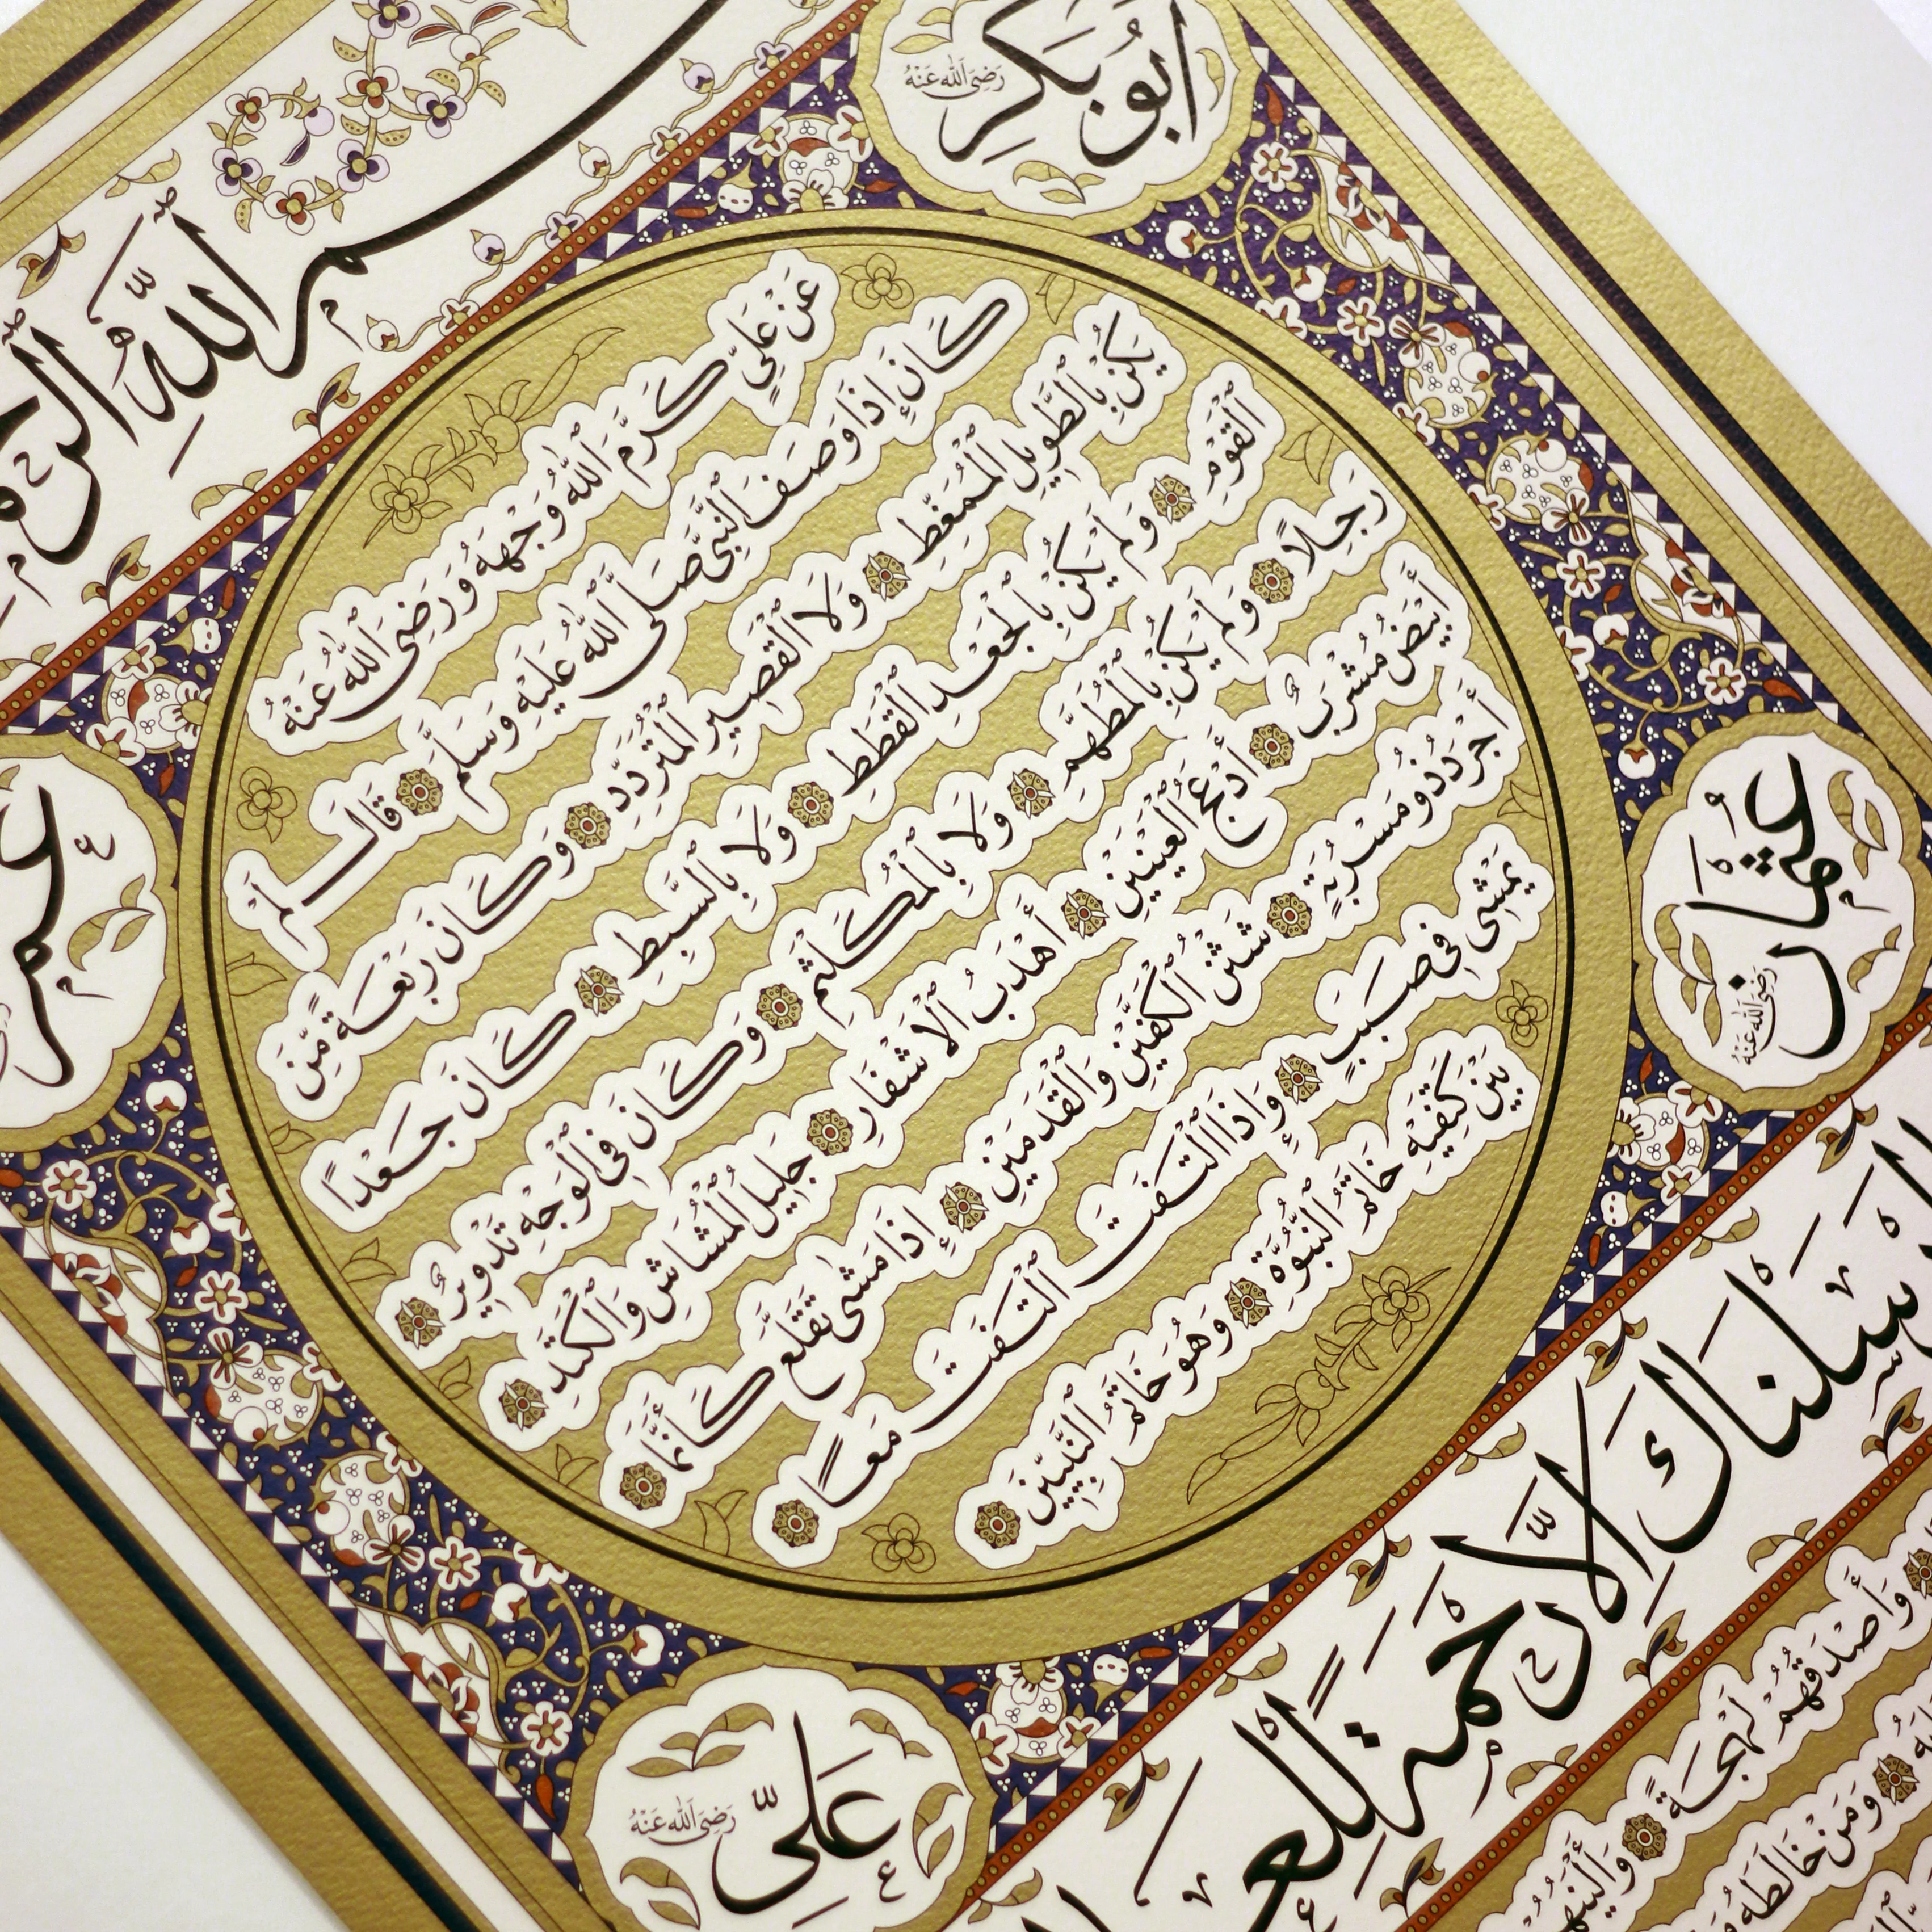 بسم الله الرحم
أَبُو بَكْرٍ
رَضِيَ اللهُ عَنْهُ
عمر
عَنْ عَلِيٍّ كَرَّمَ اللهُ وَجْهَهُ وَرَضِيَ اللهُ عَنْهُ
كَانَ إِذَا وَصَفَ النَّبِيَّ صَلَّى اللهُ عَلَيْهِ وَسَلَّمَ قَالَ لَمْ
يَكُنْ بِالطَّوِيلِ الْمُمَغَّطِ وَلَا الْقَصِيرِ الْمُتَرَدِّدِ وَكَانَ رَبْعَةً مِّنَ
الْقَوْمِ وَلَمْ يَكُنْ بِالْجَعْدِ الْقَطَطِ وَلَا بِالسَّبِطِ كَانَ جَعْدًا
رَجِلًا وَلَمْ يَكُنْ بِالْمُطَهَّمِ وَلَا بِالْمُكَلْثَمِ وَكَانَ فِي الْوَجْهِ تَدْوِيرٌ
أَبْيَضُ مُشْرَبٌ أَدْعَجُ الْعَيْنَيْنِ أَهْدَبُ الْأَشْفَارِ جَلِيلُ الْمُشَاشِ وَالْكَتَدِ
أَجْرَدُ ذُو مَسْرُبَةٍ شَثْنُ الْكَفَّيْنِ وَالْقَدَمَيْنِ إِذَا مَشَى تَقَلَّعَ كَأَنَّمَا
يَمْشِي فِي صَبَبٍ وَإِذَا الْتَفَتَ الْتَفَتَ مَعًا
بَيْنَ كَتِفَيْهِ خَاتَمُ النُّبُوَّةِ وَهُوَ خَاتَمُ النَّبِيِّينَ
عثمان
رَضِيَ اللهُ عَنْهُ
عَلِيّ
رَضِيَ اللهُ عَنْهُ
ارسلناك الا رحمة للعا
وَأَصْدَقُهُمْ لَهْجَةً وَأَلْيَنُهُمْ
وَمَنْ خَالَطَهُ